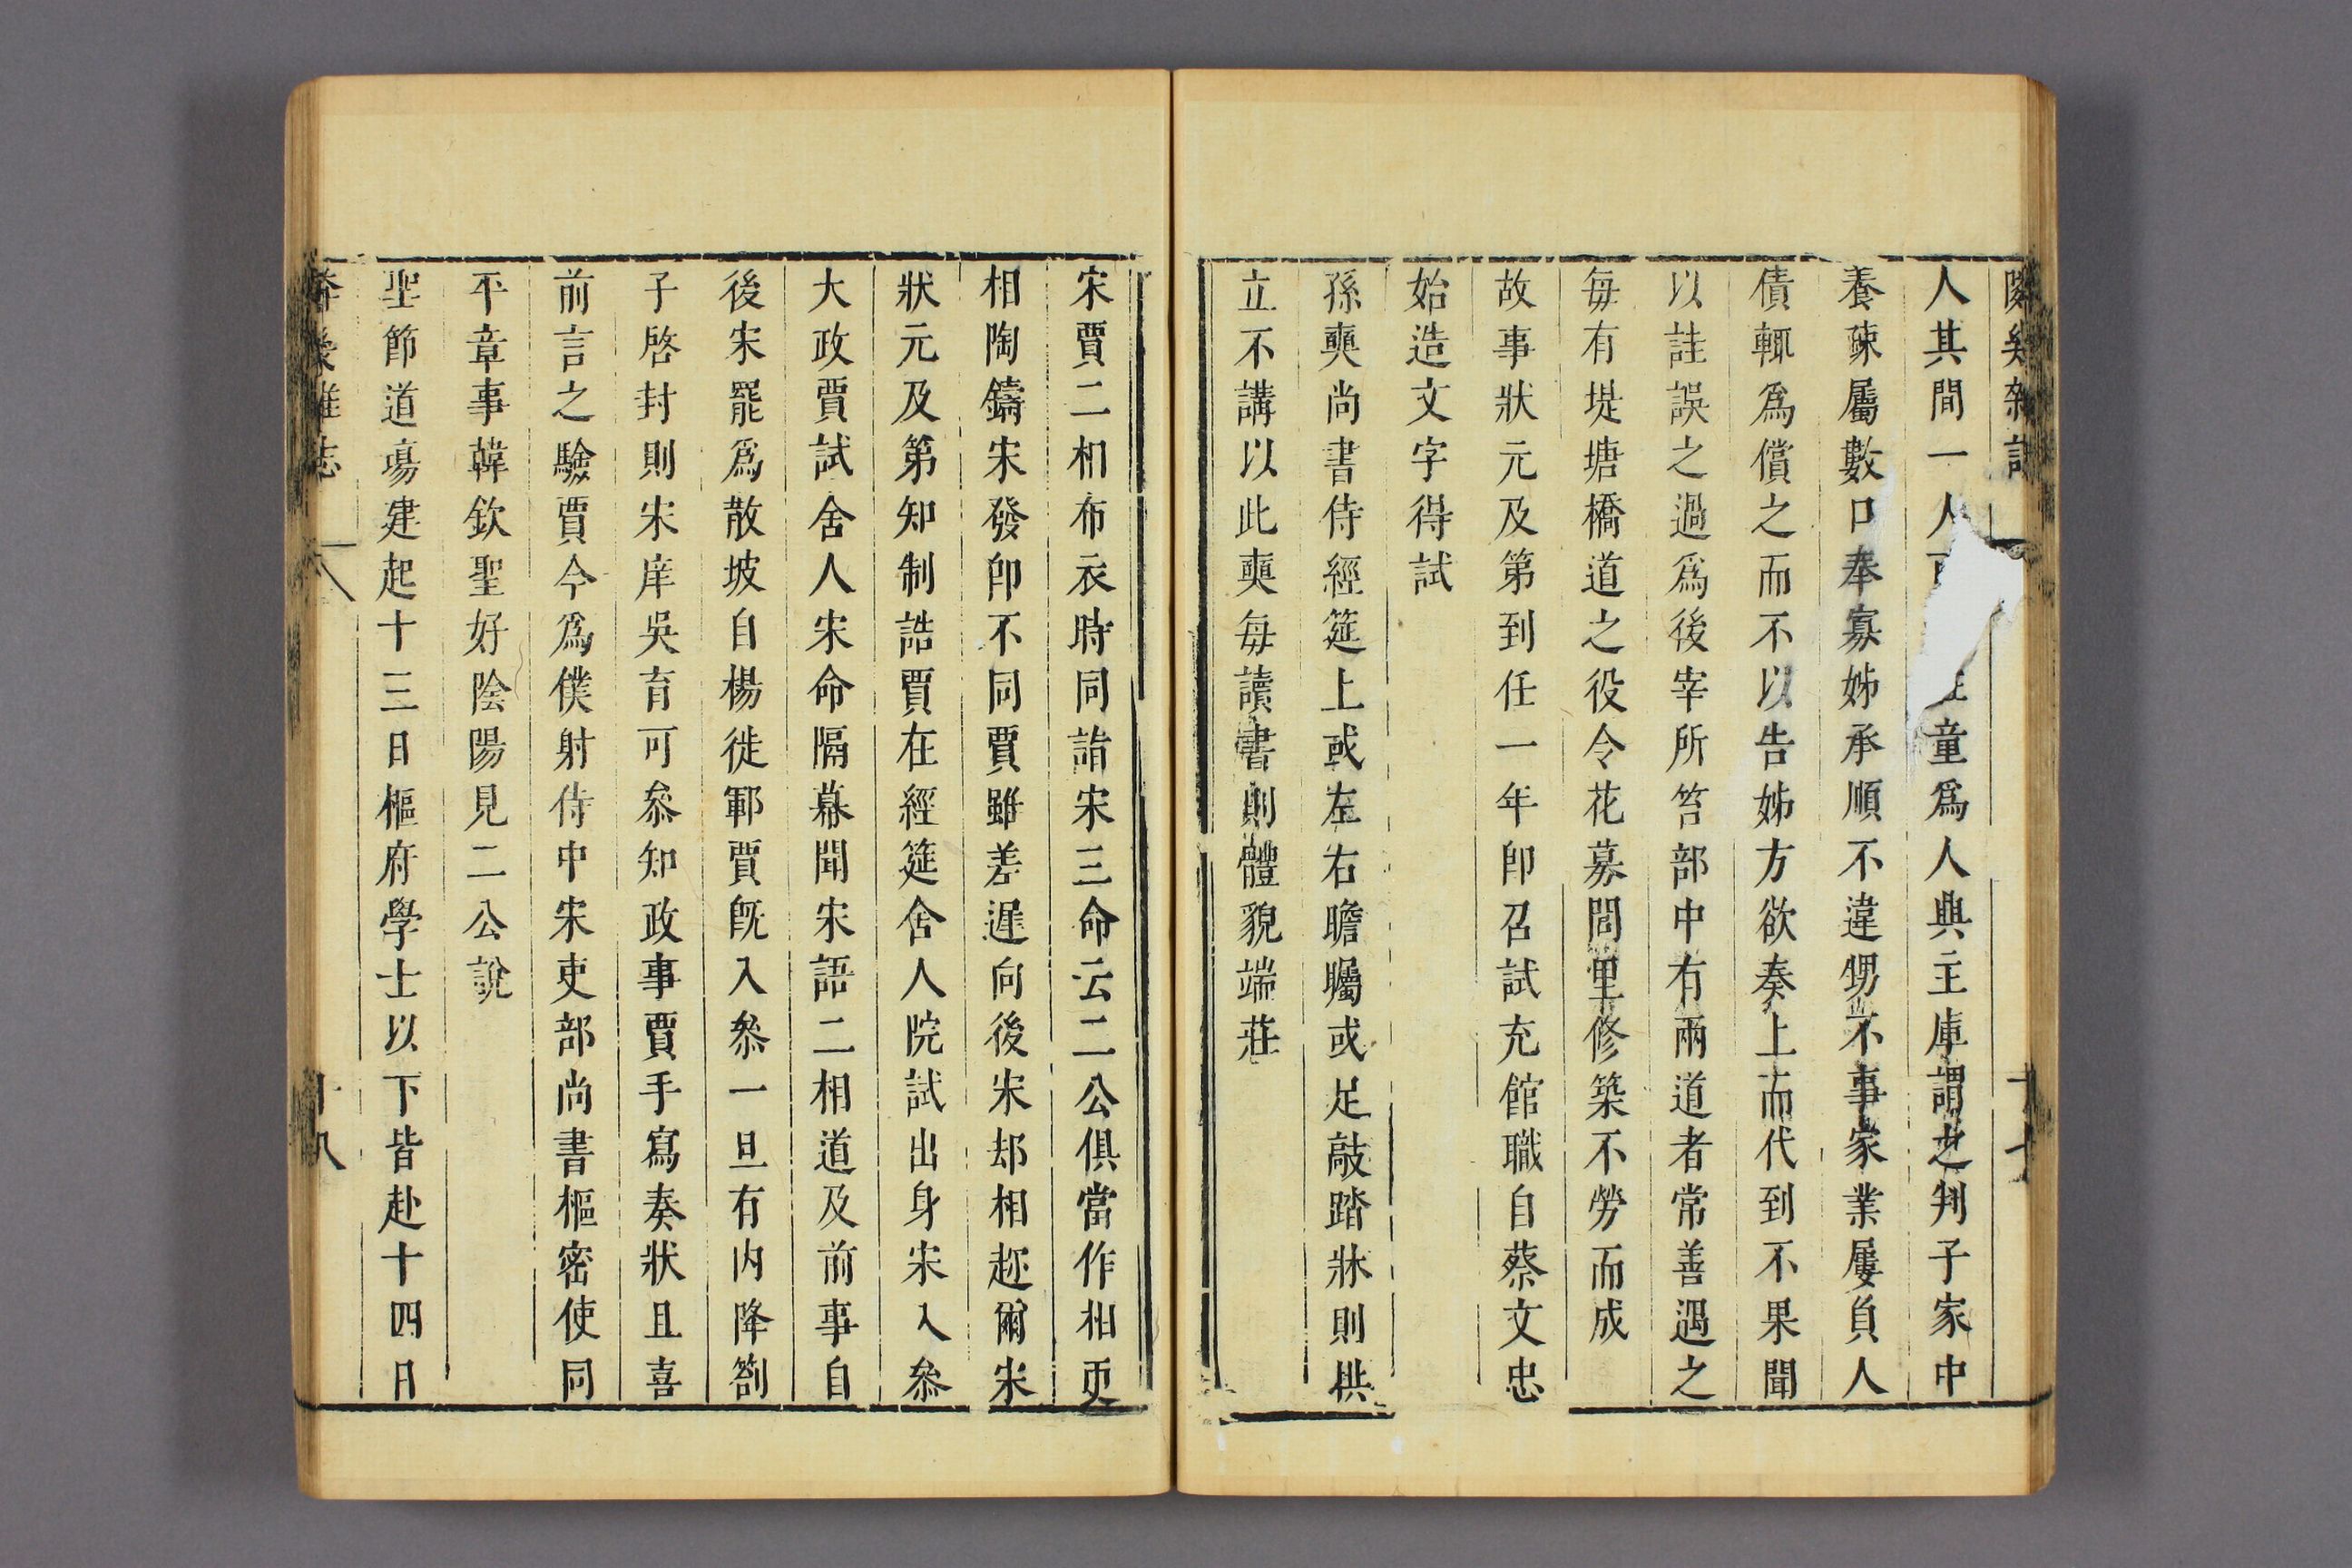 人其間一人
童爲人與主庫謂之判子家中
養疎屬數口奉寡姊承順不違甥不事家業屢負人
債輒爲償之而不以告姊方欲奏上而代到不果聞
以註誤之過爲後宰所笞部中有兩道者常善遇之
每有堤塘橋道之役令花募閭里修築不勞而成
故事狀元及第到任一年卽召試充館職自蔡文忠
始造文字得試
孫奭尚書侍經筵上或左右瞻矚或足敲踏牀則拱
立不講以此奭每讀書則體貌端莊
宋賈二相布衣時同詣宋三命云二公俱當作相更
相陶鑄宋發卽不同賈雖差遲向後宋却相趂爾宋
狀元及第知制誥賈在經筵舍人院試出身宋入叅
大政賈試舍人宋命隔幕聞宋語二相道及前事自
後宋罷爲散坡自楊徙鄆賈旣入叅一旦有内降劄
子啓封則宋庠吳育可叅知政事賈手寫奏狀且喜
前言之驗賈今爲僕射侍中宋吏部尚書樞密使同
平章事韓欽聖好陰陽見二公說
聖節道塲建起十三日樞府學士以下皆赴十四日
十八